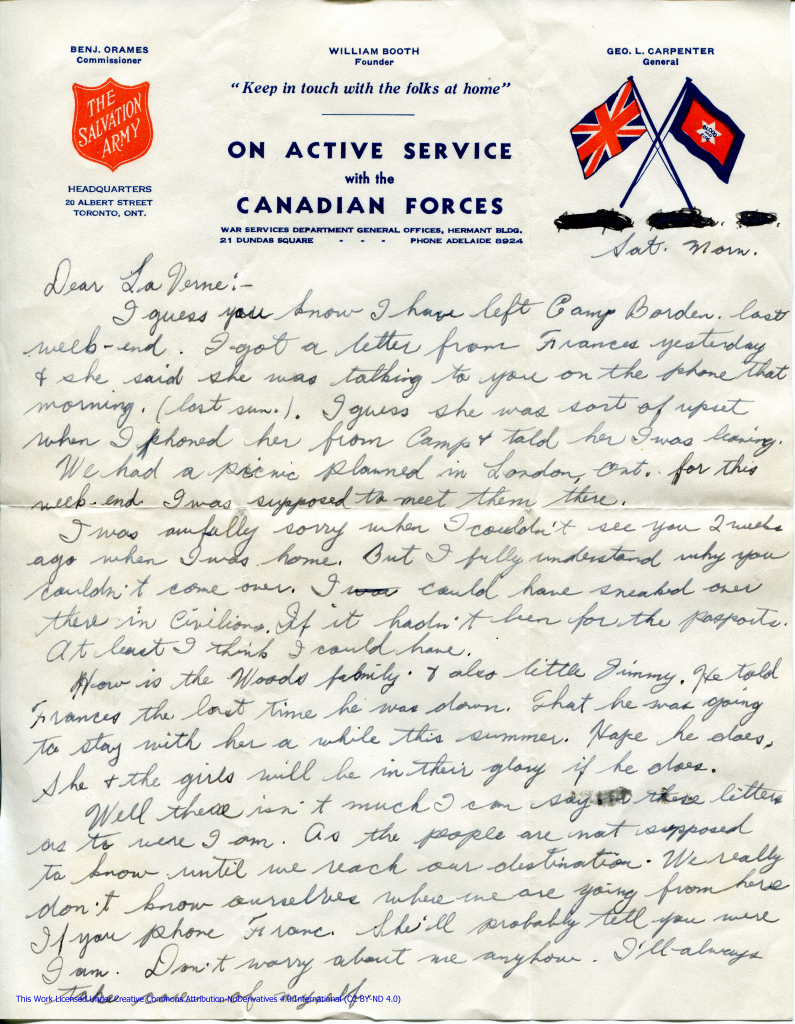 BENJ. ORAMES
Commissioner
WILLIAM BOOTH
Founder
GEO. L. CARPENTER
General
"Keep in touch with the folks at home"
THE
SALVATION
ARMY
ON ACTIVE SERVICE
with the
CANADIAN FORCES
HEADQUARTERS
20 ALBERT STREET
TORONTO, ONT.
WAR SERVICES DEPARTMENT GENERAL OFFICES, HERMANT BLDG.
21 DUNDAS SQUARE - - - PHONE ADELAIDE 8924
Sat. Morn.
Dear La Verne:-
I guess you know I have left Camp Borden. last
week-end. I got a letter from Frances yesterday
& she said she was talking to you on the phone that
morning. (last sun.). I guess she was sort of upset
when I phoned her from Camp & told her I was leaving.
We had a picnic planned in London, Ont. for this
week-end I was supposed to meet them there.
I was awfully sorry when I couldn't see you 2 weeks
ago when I was home. But I fully understand why you
couldn't come over. I was could have sneaked over
there in Civilians. If it hadn't been for the pasports.
At least I think I could have.
How is the Woods family. & also little Jimmy. He told
Frances the last time he was down. That he was going
to stay with her a while this summer. Hope he does.
She & the girls will be in their glory if he does.
Well there isn't much I can say these letters
as to were I am. As the people are not supposed
to know until we reach our destination. We really
don't know ourselves where we are going from here
If you phone Franc. She'll probably tell you were
I am. Don't worry about me anyhow. I'll always
take care of myself
This Work Licensed Under Creative Commons Attribution-NoDerivatives 4.0 International (CC BY-ND 4.0)